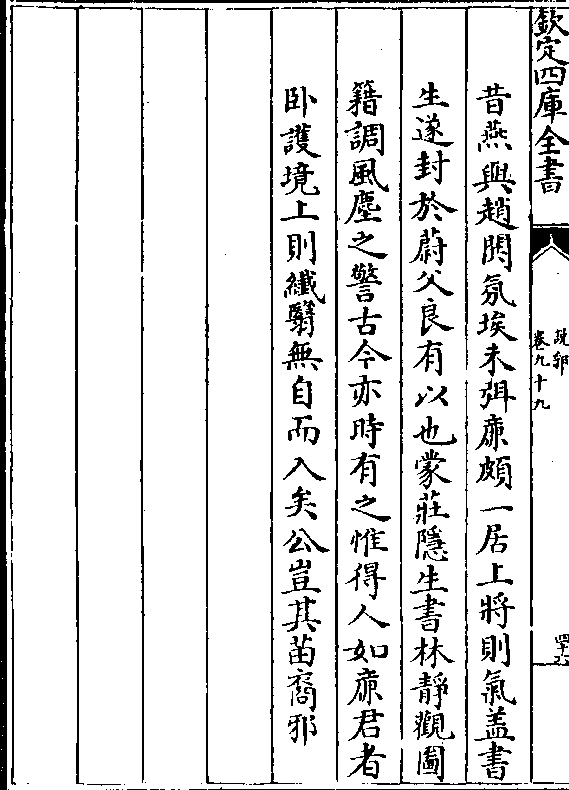 欽定四庫全書
說郛
卷九十九
昔燕與趙鬩氛埃未弭亷頗一居上將則氣盖書
生遂封於蔚父良有以也蒙莊隱生書林靜觀圖
籍調風塵之警古今亦時有之惟得人如亷君者
卧護境上則纖翳無自而入矣公豈其苗裔邪